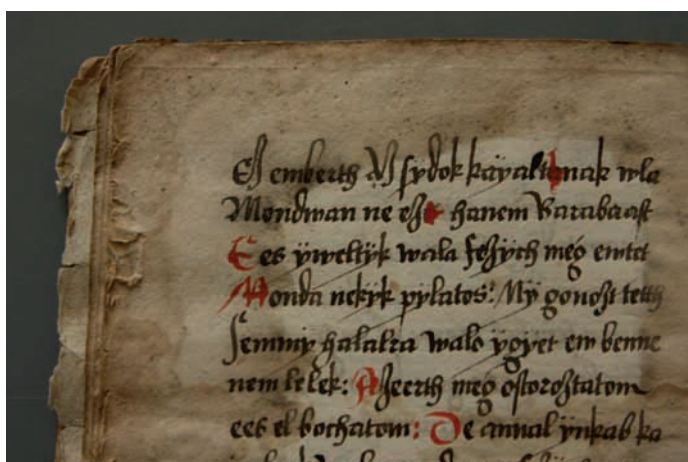 Eʒ emberth Aʒ sydok kayaltanak wla
Mondwan ne eʒt hanem Barabaast
Ees ÿweltÿk wala feʒÿch meg ewtet
Monda nekÿk pÿlatos: Mÿ gonoʒt tetth
Semmÿ halalra walo ÿgÿet em benne
nem lelek: Aʒeerth meg ostoroʒtatom
ees el bochatom: De annal ÿnkab ka